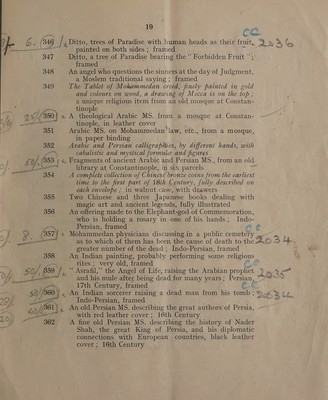 19
346 Ditto, trees of Paradise with human heads as their fruit,
painted on both sides ; framed
347 Ditto, a tree of Paradise bearing the "Forbidden Fruit" ;
framed
348 An angel who questions the sinners at the day of Judgment,
a Moslem traditional saying ; framed
349 The Tablet of Mohammedan creed, finely painted in gold
and colours on wood, a drawing of Mecca is on the top ;
a unique religious item from an old mosque at Constan-
tinople
350 A theological Arabic MS. from a mosque at Constan-
tinople, in leather cover
351 Arabic MS. on Mohammedan law, etc., from a mosque,
in paper binding
352 Arabic and Persian calligraphies, by different hands, with
cabalistic and mystical formulæ and figures
353 Fragments of ancient Arabic and Persian MS., from an old
library at Constantinople, in six parcels
354 A complete collection of Chinese bronze coins from the earliest
time to the first part of 18th Century, fully described on
each envelope ; in walnut case, with drawers
355 Two Chinese and three Japanese books dealing with
magic art and ancient legends, fully illustrated
356 An offering made to the Elephant-god of Commemoration,
who is holding a rosary in one of his hands ; Indo-
Persian, framed
357 Mohammedan physicians discussing in a public cemetery
as to which of them has been the cause of death to the
greater number of the dead ; Indo-Persian, framed
358 An Indian painting, probably performing some religious
rites ; very old, framed
359 "Asrafil," the Angel of Life, raising the Arabian prophet
and his mule after being dead for many years ; Persian,
17th Century, framed
360 An Indian sorcerer raising a dead man from his tomb ;
Indo-Persian, framed
361 An old Persian MS. describing the great authors of Persia,
with red leather cover ; 16th Century
362 A fine old Persian MS. describing the history of Nader
Shah, the great King of Persia, and his diplomatic
connections with European countries, black leather
cover ; 16th Century